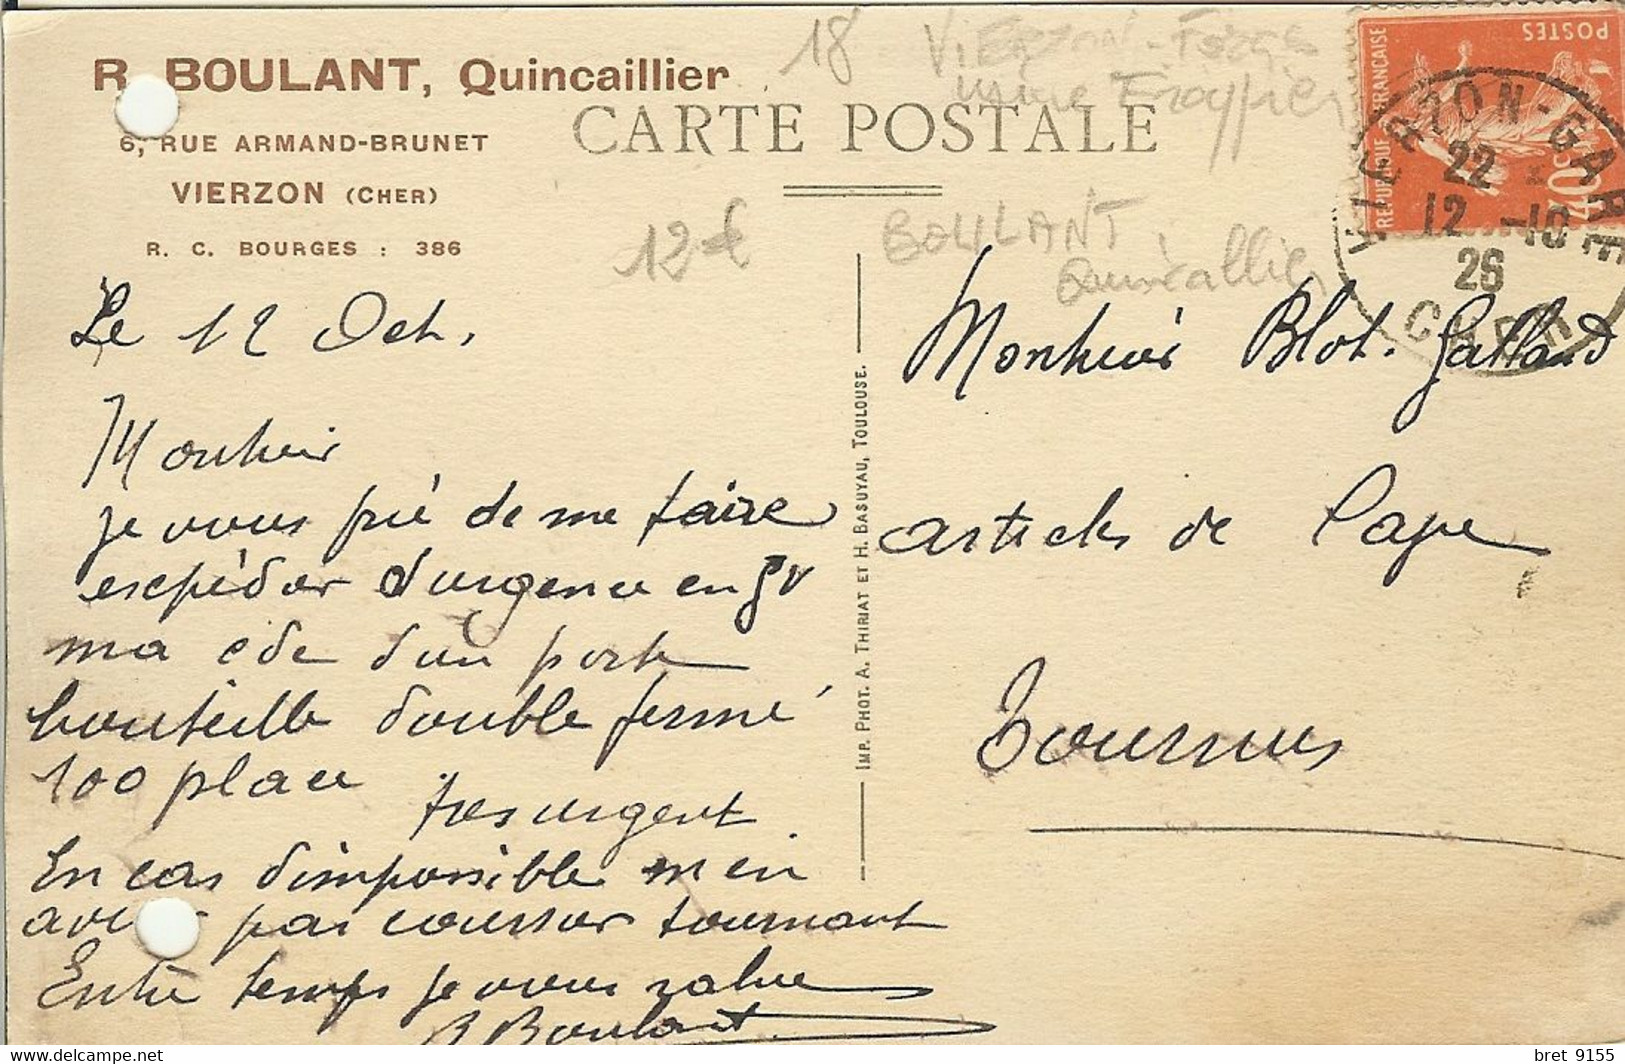 R. BOULANT, Quincaillier
6, RUE ARMAND-BRUNET
VIERZON (CHER)
R. C. BOURGES : 386
CARTE POSTALE
18 VIERZON - Forge
12 €
BOULANT
Quincaillier
POSTES
REPUBLIQUE FRANÇAISE
40c
VIERZON-GARE
22
12 -10
26
CHER
Le 12 Oct.
Monsieur
je vous prie de me faire
expédier d'urgence en gv
ma cde d'un porte
bouteille double fermé
100 place
tres urgent
En cas d'impossible m'en
aviser par courrier tournant
Entre temps je vous salue
R Boulant
IMP. PHOT. A. THIRIAT ET H. BASUYAU, TOULOUSE.
Monsieur Blot-Galland
articles de Cave
Tournus
bret 9155